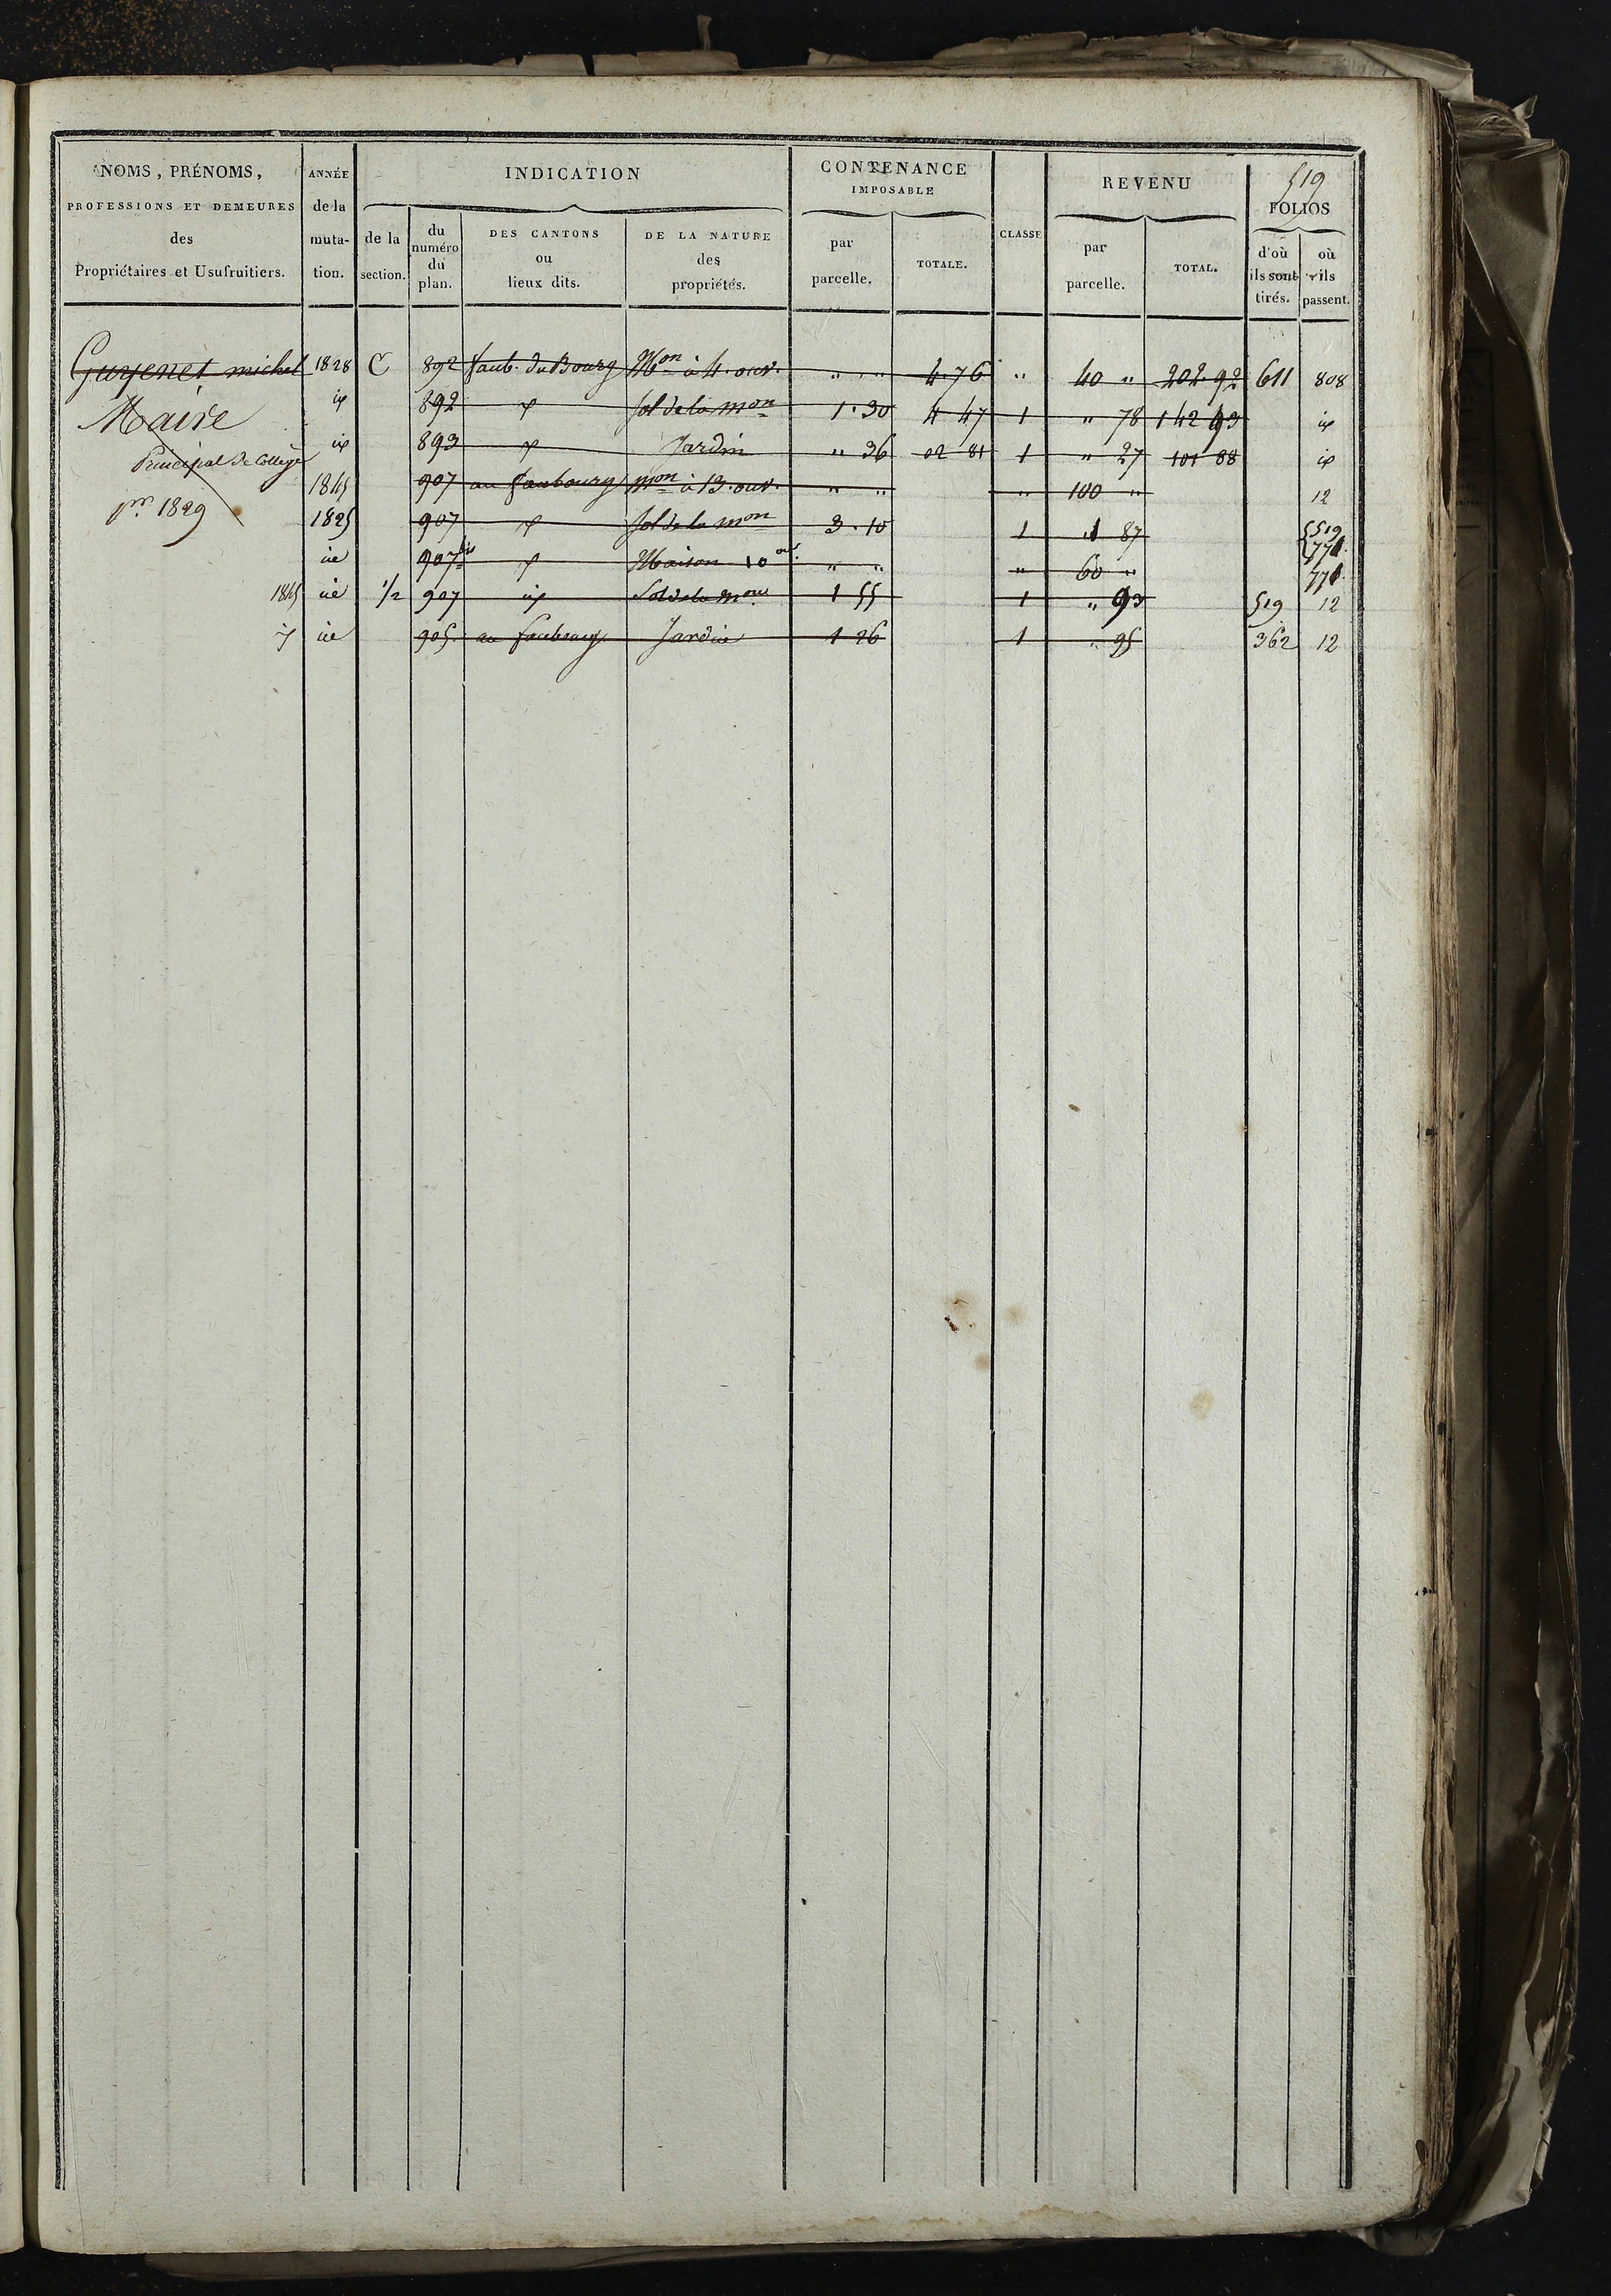 519
NOMS, PRÉNOMS, PROFESSIONS ET DEMEURES des Propriétaires et Usufruitiers.
ANNÉE de la muta- tion.
INDICATION
de la section.
du numéro du plan.
DES CANTONS ou lieux dits.
DE LA NATURE des propriétés.
CONTENANCE IMPOSABLE
par parcelle.
TOTALE.
CLASSE
REVENU
par parcelle.
TOTAL.
FOLIOS
d'où ils sont tirés.
où ils passent.
Guyenet michel 1828 C 892 faub. du Bourg Mon à 4. ouv. " " 4.76 " 40 " 202.92 611 808
Maire id 892 id sol de la mon 1.30 4 47 1 " 78 142 93 id
Principal de College id 893 id Jardin " 36 02 81 1 " 27 101 88 id
1845 907 au faubourg mon à 13. ouv. " " " 100 " 12
pr. 1829 1825 907 id sol de la mon 3.10 1 1 87 519 771.
id 907 bis id Maison 10 ouv. " " " 60 " 771.
1845 id 1/2 907 id Sol de la mon 1 55 1 " 93 519 12
id id 905. au faubourg Jardin 1 26 1 " 95 362 12